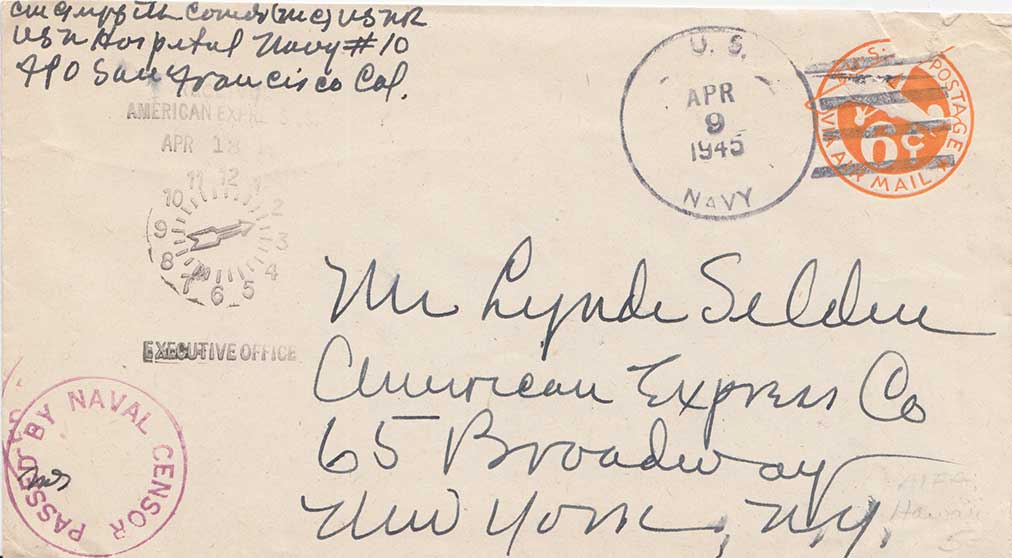 CM Griffith Comdr (MC) USNR
USN Hospital Navy #10
FPO San Francisco Cal.
AMERICAN EXPRESS
APR 18
11 12 1
10 2
9 3
8 4
7 6 5
EXECUTIVE OFFICE
PASSED BY NAVAL CENSOR
U. S.
APR
9
1945
NAVY
U.S. POSTAGE
6¢
VIA AIR MAIL
Mr Lynde Selden
American Express Co
65 Broadway
New York, N.Y.
Hawaii